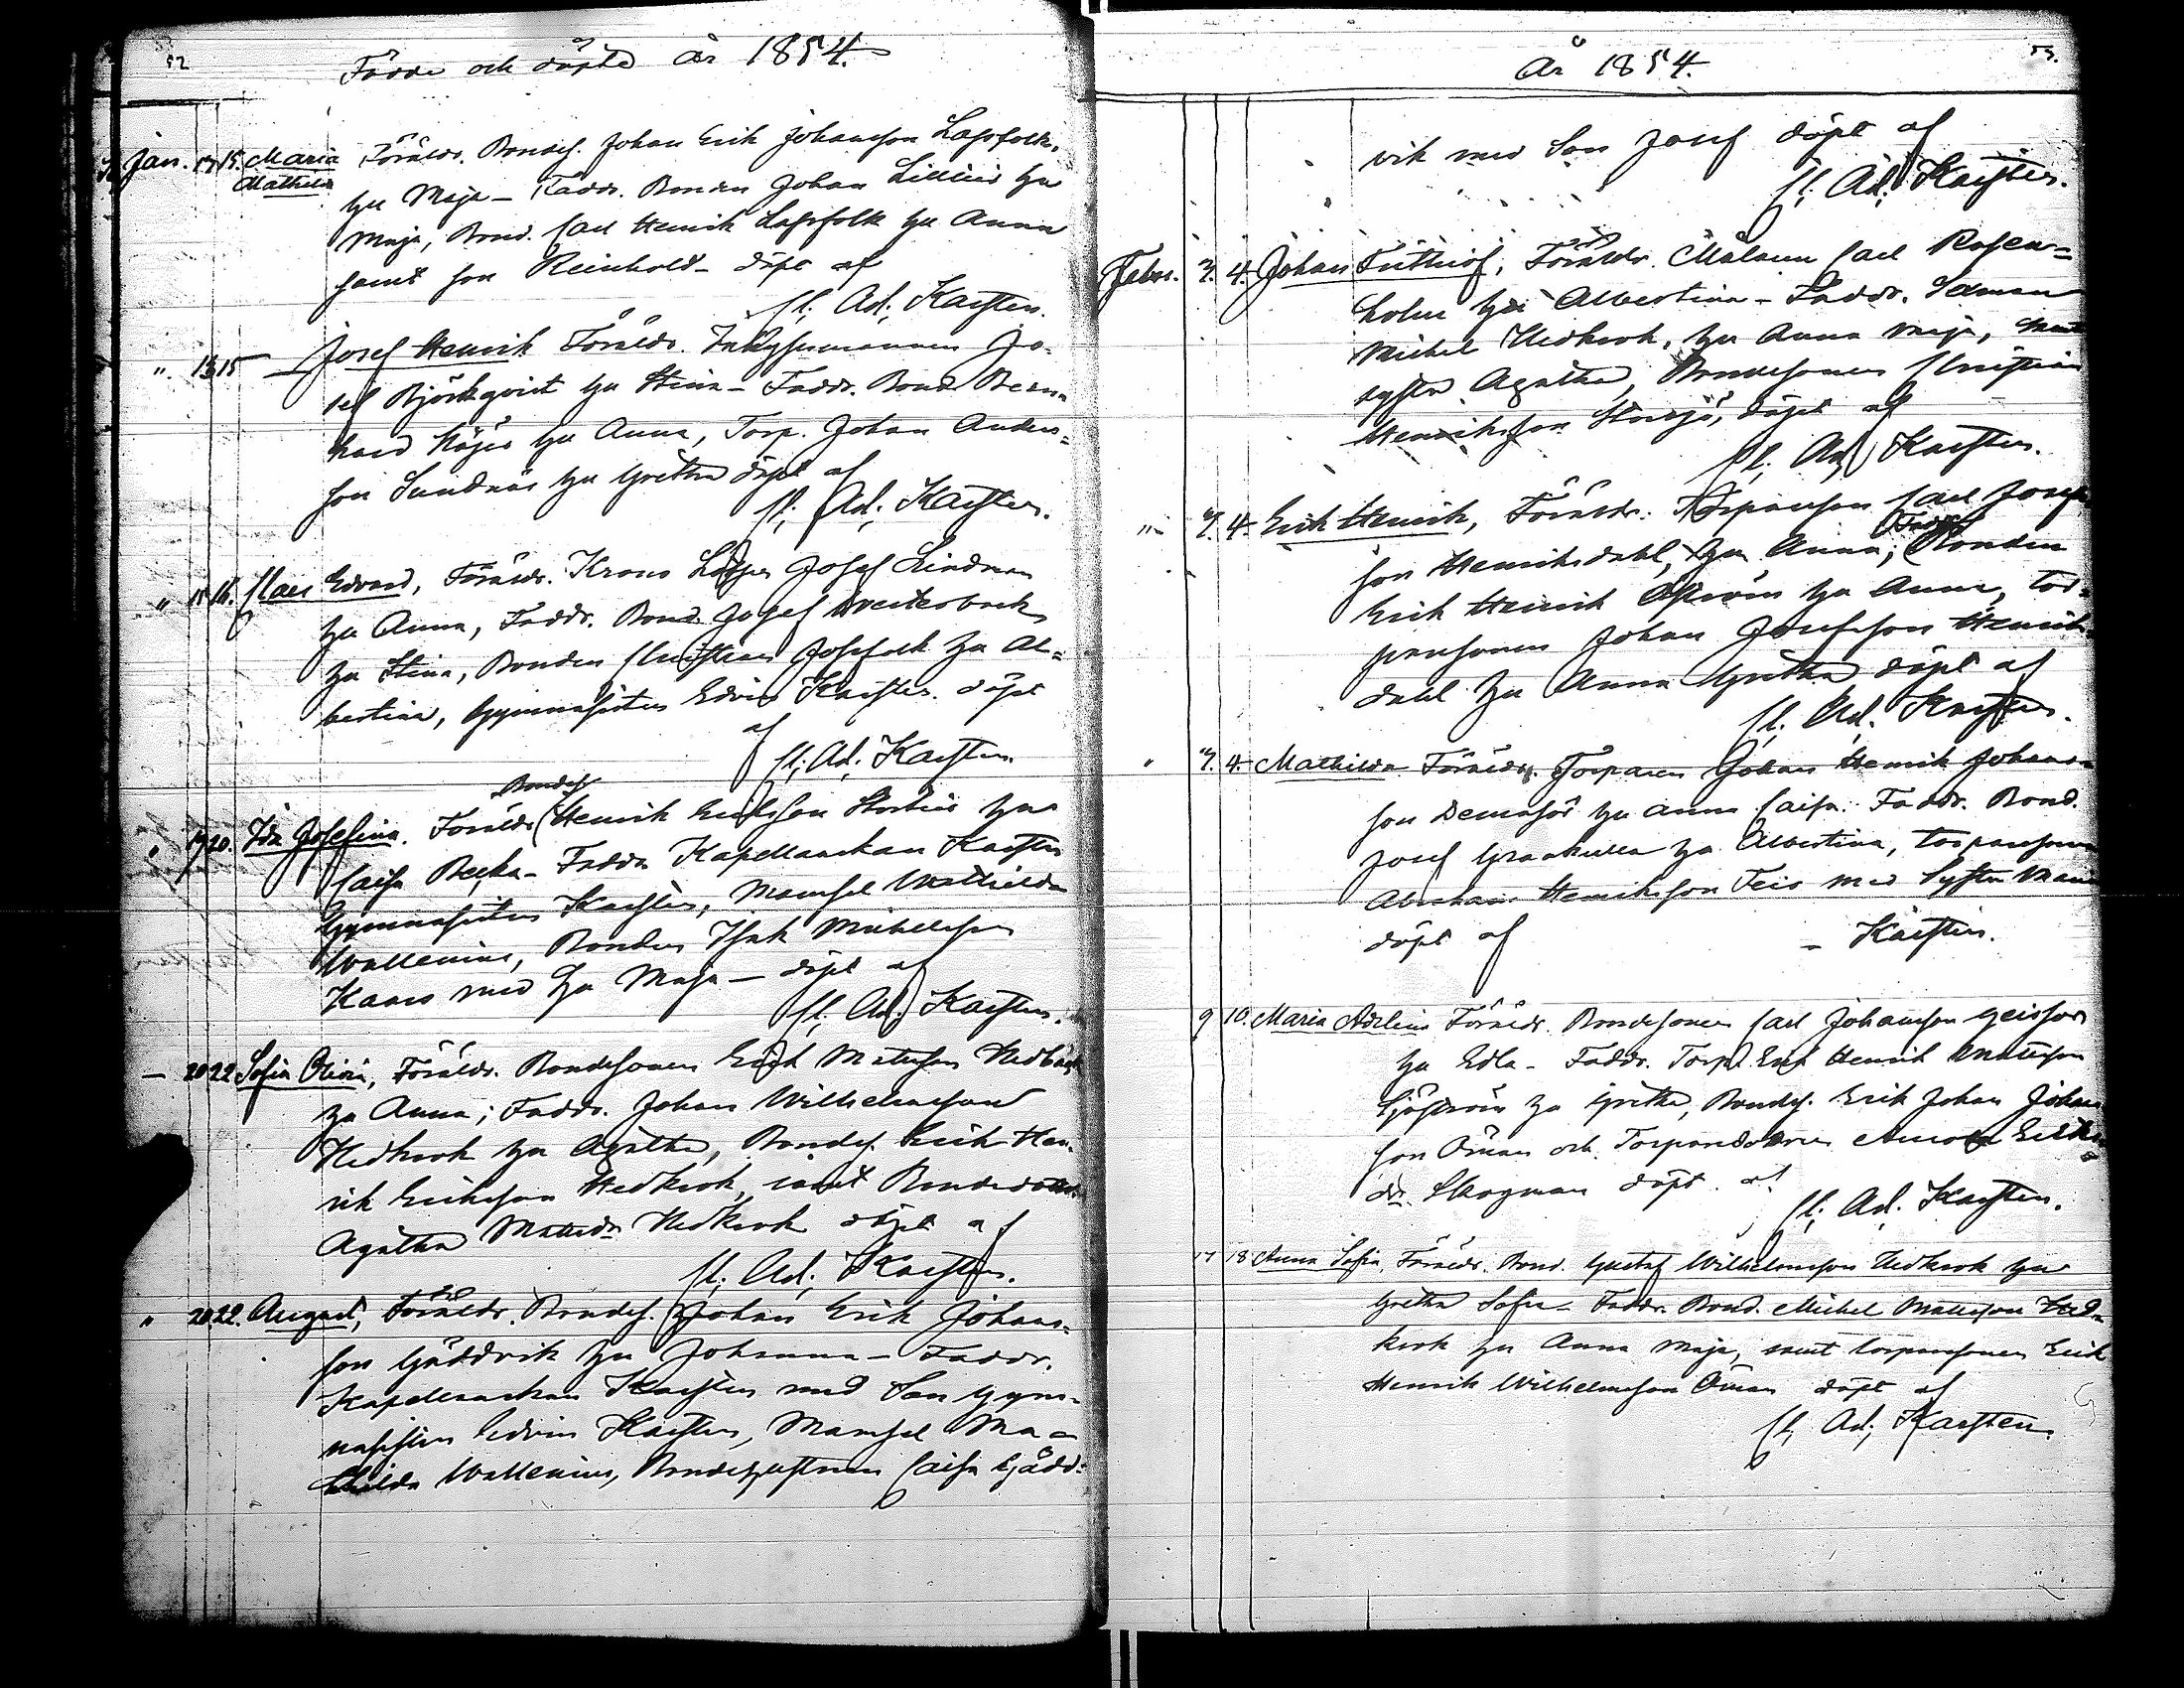 52
Födde och döpte år 1854.
Jan. 13 15. Maria Mathilda Föräldr. Bondes. Johan Erik Johansson Lassfolk,
hu Maja – Faddr. Bonden Johan Lillsid hu
Maja, Bond. Carl Henrik Lassfolk hu Anna
samt son Reinhold – döpt af
Cl. Ad. Karsten.
" 13 15 Josef Henrik Föräldr. Inhysesmannen Jo-
sef Björkqvist hu Stina – Faddr. Bond. Bern-
hard Höjer hu Anna, Torp. Johan Anders-
son Sundnäs hu Gretha döpt af
Cl. Ad. Karsten.
" 15 16. Claes Edvard, Föräldr. Krono Josef Lindman
hu Anna, Faddr. Bond. Josef Westerback
hu Stina, Bonden Christian Josefsson hu Al-
bertina, Gymnasisten Edvin Karsten. döpt
af
Cl. Ad. Karsten.
" 19 20. Ida Josefina. Föräldr. Bondes. Henrik Eriksson hu
Caisa Becka – Faddr. Kapellanskan Karsten
Gymnasisten Karsten, Mamsel Mathilda
Wallenius, Bonden Isak Michelsson
Kaars med hu Maja – döpt af
Cl. Ad. Karsten.
— 20 22 Sofia Olivia, Föräldr. Bondesonen Erik Mattsson
hu Anna; Faddr. Johan Wilhelmsson
Hedkrok hu Agatha, Bondes. Erik Hen-
rik Eriksson Hedkrok, samt
Agatha Mattsdr Hedkrok döpt af
Cl. Ad. Karsten.
" 20 22. August, Föräldr. Bondes. Johan Erik Johans-
son Gäddvik hu Johanna – Faddr.
Kapellanskan Karsten med Son Gym-
nasisten Edvin Karsten, Mamsel Ma-
thilda Wallenius, Bondehustrun Caisa Gädd-
53.
År 1854.
vik med Son Josef döpt af
Cl. Ad. Karsten.
Febr. 3. 4. Johan Frithiof, Föräldr. Målaren Carl Rosen-
holm hu Albertina – Faddr.
Michel Hedkrok, hu Anna Maja, samt
syster Agatha, Bondesonen Christian
Henriksson Storsjö, döpt af
Cl. Ad. Karsten.
" 3. 4. Erik Henrik, Föräldr. Torparson Carl Josefs-
son Henriksdahl, hu Anna; Faddr. Bonden
Erik Henrik hu Anna, tor-
parsonen Johan Josefsson Henriks-
dahl hu Anna Gretha döpt af
Cl. Ad. Karsten.
" 3. 4. Mathilda Föräldr. Torparen Johan Henrik Johans-
son hu Anna Caisa. Faddr. Bond.
Josef hu Albertina, torparsonen
Abraham Henriksson Teir med Syster Maria
döpt af – Karsten.
9 10. Maria Adelina Föräldr. Bondesonen Carl Johansson Geisor
hu Edla – Faddr. Torp. Erik Henrik Mattsson
Sjöström hu Gretha, Bondes. Erik Johan Johans-
son Öman och Torparedottren Eriks-
dr. Skogman döpt af
Cl. Ad. Karsten.
17 18 Anna Sofia, Föräldr. Bond. Gustaf Wilhelmsson Hedkrok hu
Gretha Sofia – Faddr. Bond. Michel Mattsson Hed-
krok hu Anna Maja, samt torparsonen Erik
Henrik Wilhelmsson Öman döpt af
Cl. Ad. Karsten.